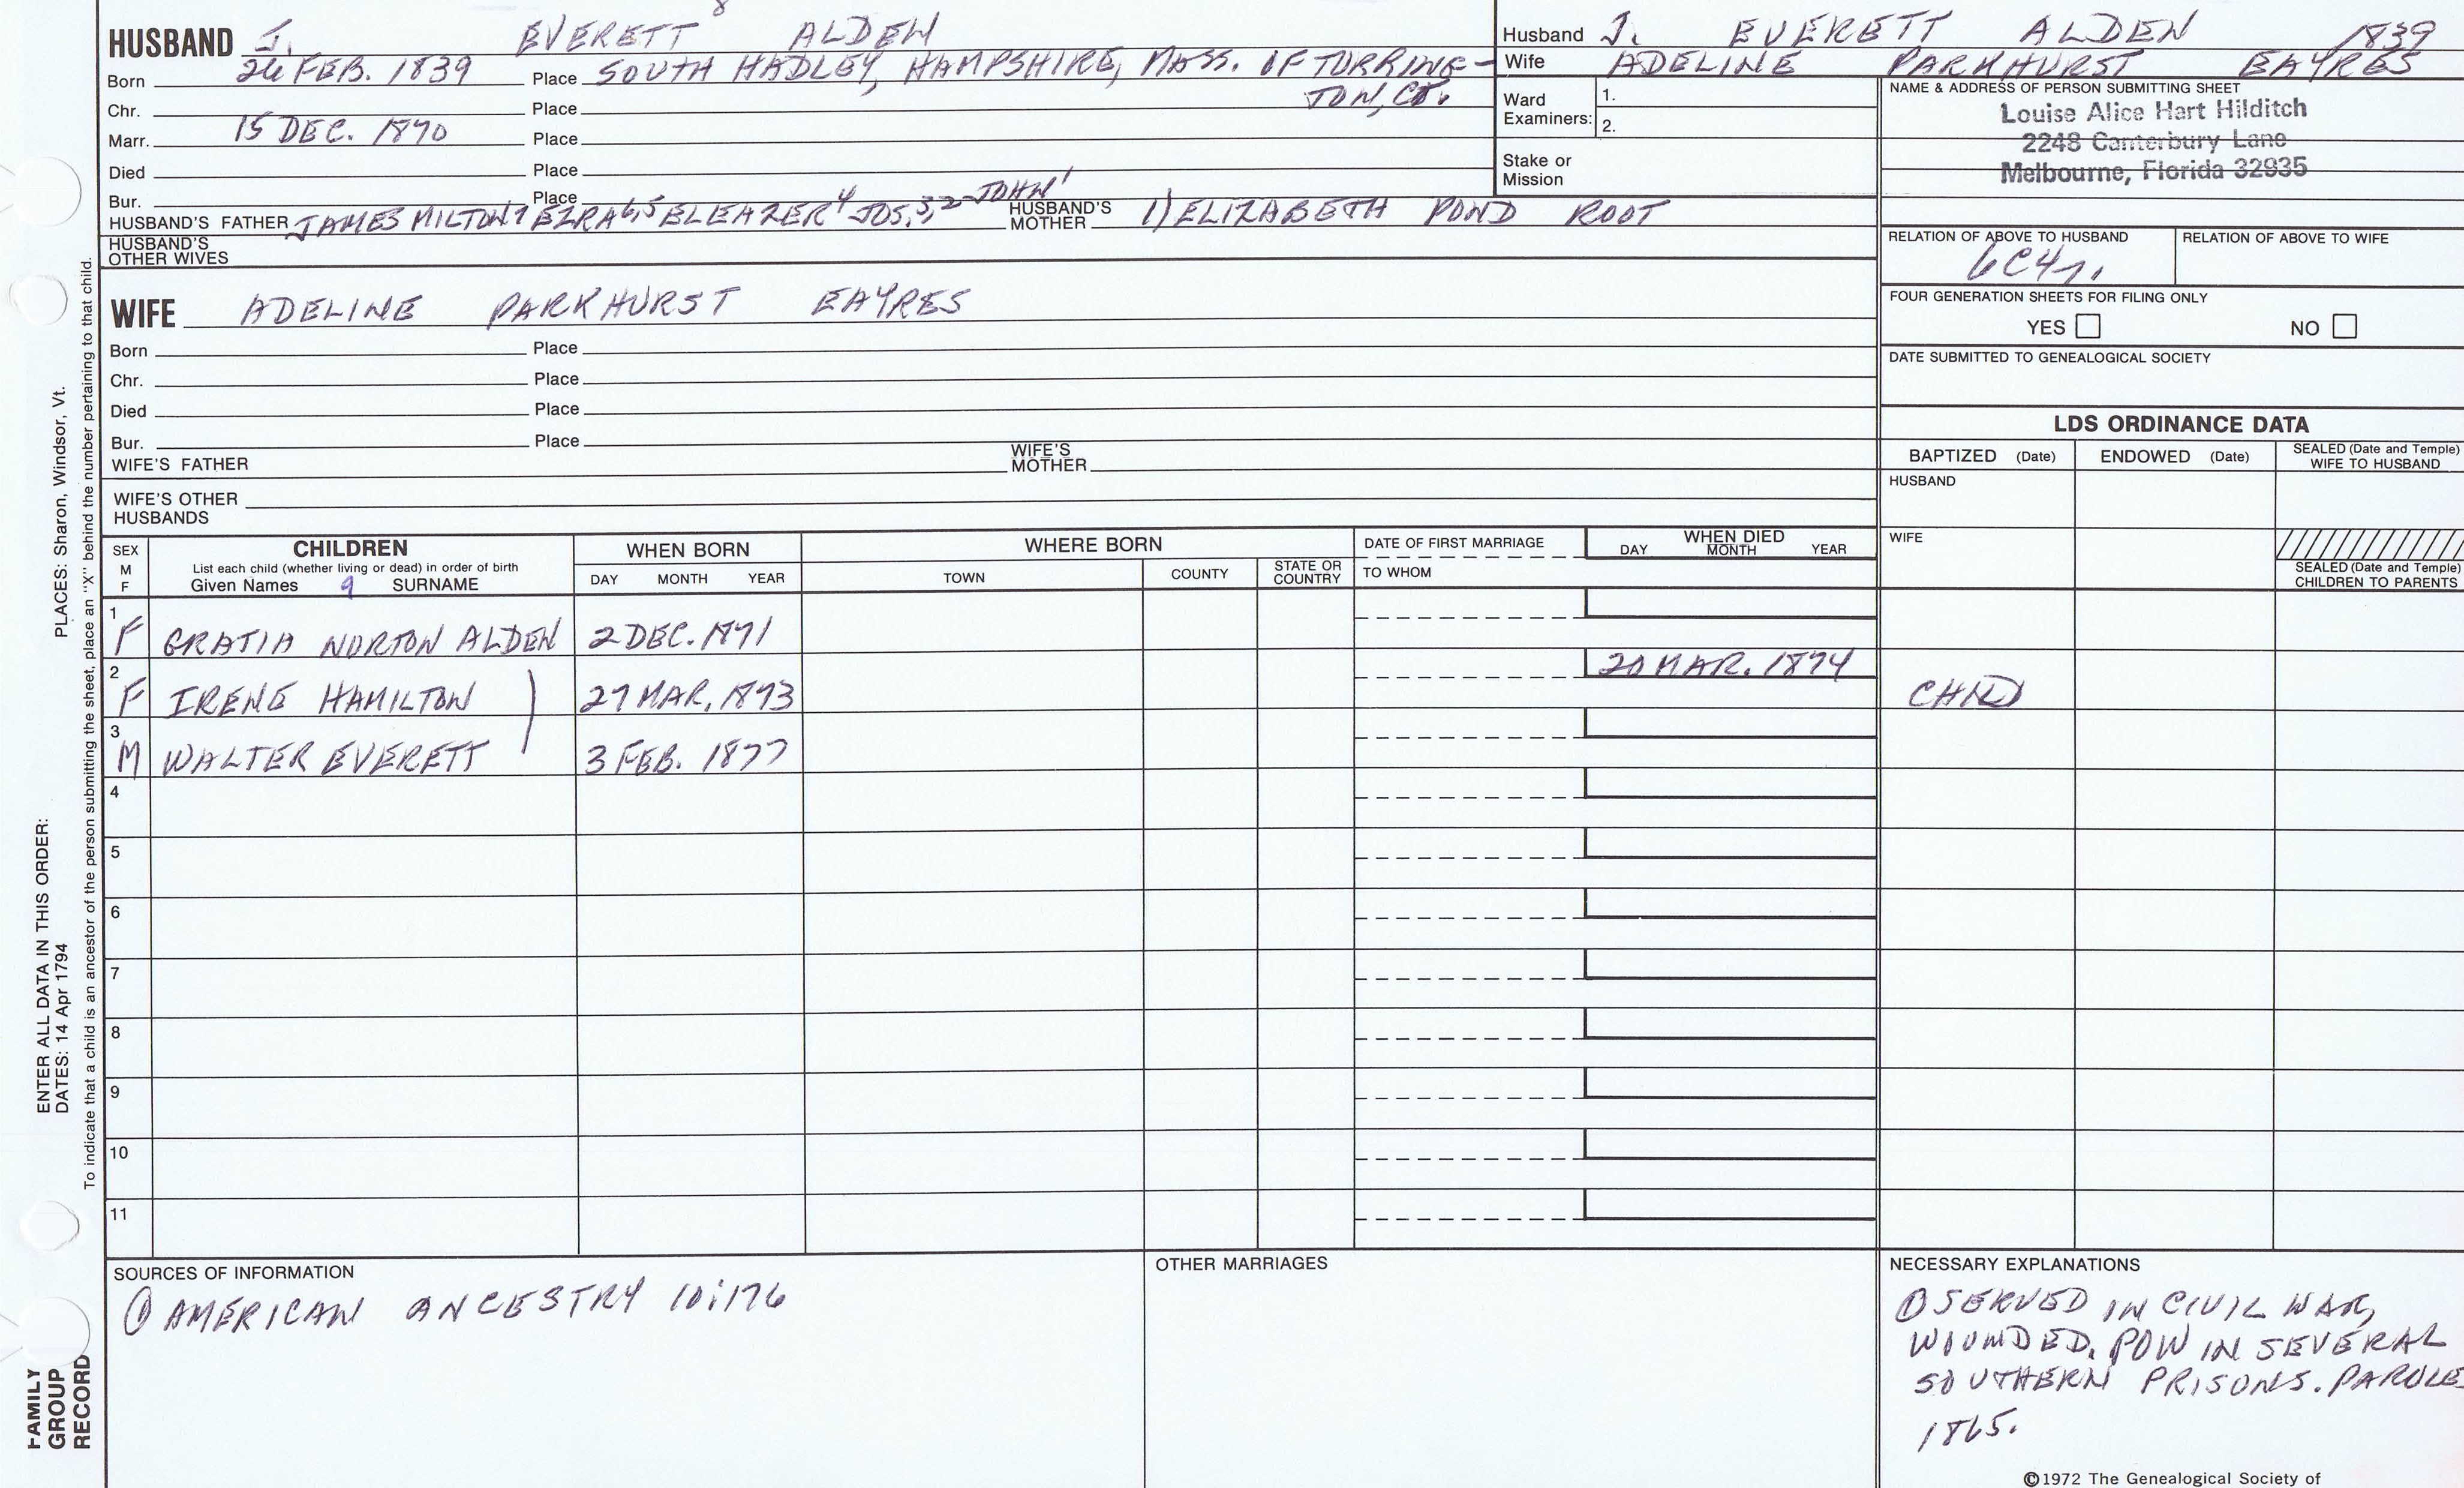 HUSBAND J. EVERETT 8 ALDEN
Born 26 FEB. 1839 Place SOUTH HADLEY, HAMPSHIRE, MASS. OF TORRING-
TON, CT.
Chr. Place
Marr. 15 DEC. 1870 Place
Died Place
Bur. Place
HUSBAND'S FATHER JAMES MILTON 7 EZRA 6,5 ELEAZER 4 JOS. 3,2 JOHN 1 HUSBAND'S MOTHER 1) ELIZABETH POND ROOT
HUSBAND'S OTHER WIVES
WIFE ADELINE PARKHURST EAYRES
Born Place
Chr. Place
Died Place
Bur. Place
WIFE'S FATHER WIFE'S MOTHER
WIFE'S OTHER HUSBANDS
Husband J. EVERETT ALDEN 1839
Wife ADELINE PARKHURST EAYRES
Ward Examiners: 1.
2.
Stake or Mission
NAME & ADDRESS OF PERSON SUBMITTING SHEET
Louise Alice Hart Hilditch
2248 Canterbury Lane
Melbourne, Florida 32935
RELATION OF ABOVE TO HUSBAND RELATION OF ABOVE TO WIFE
6C4r.
FOUR GENERATION SHEETS FOR FILING ONLY
YES NO
DATE SUBMITTED TO GENEALOGICAL SOCIETY
LDS ORDINANCE DATA
BAPTIZED (Date) ENDOWED (Date) SEALED (Date and Temple) WIFE TO HUSBAND
HUSBAND
WIFE
SEALED (Date and Temple) CHILDREN TO PARENTS
SEX M F
CHILDREN
List each child (whether living or dead) in order of birth
Given Names 9 SURNAME
WHEN BORN
DAY MONTH YEAR
WHERE BORN
TOWN COUNTY STATE OR COUNTRY
DATE OF FIRST MARRIAGE
TO WHOM
WHEN DIED
DAY MONTH YEAR
1 F GRATIA NORTON ALDEN 2 DEC. 1871
2 F IRENE HAMILTON 27 MAR. 1873 20 MAR. 1874 CHILD
3 M WALTER EVERETT 3 FEB. 1877
4
5
6
7
8
9
10
11
SOURCES OF INFORMATION
① AMERICAN ANCESTRY 10:176
OTHER MARRIAGES
NECESSARY EXPLANATIONS
① SERVED IN CIVIL WAR,
WOUNDED. POW IN SEVERAL
SOUTHERN PRISONS. PAROLE
1865.
©1972 The Genealogical Society of
ENTER ALL DATA IN THIS ORDER:
DATES: 14 Apr 1794 PLACES: Sharon, Windsor, Vt.
To indicate that a child is an ancestor of the person submitting the sheet, place an "X" behind the number pertaining to that child.
FAMILY
GROUP
RECORD